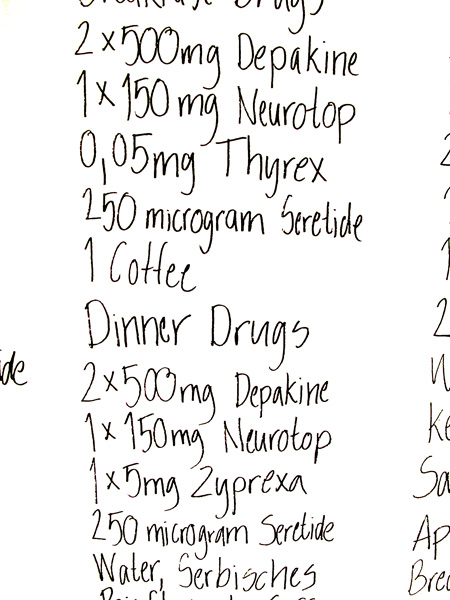 Breakfast Drugs
2x500mg Depakine
1x150mg Neurotop
0,05mg Thyrex
250 microgram Seretide
1 Coffee
Dinner Drugs
2x500mg Depakine
1x150mg Neurotop
1x5mg Zyprexa
250 microgram Seretide
Water, Serbisches